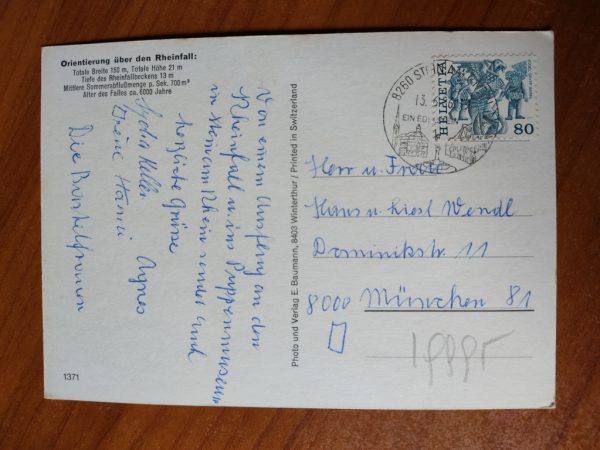 Orientierung über den Rheinfall:
Totale Breite 150 m, Totale Höhe 21 m
Tiefe des Rheinfallbeckens 13 m
Mittlere Sommerabflußmenge p. Sek. 700 m³
Alter des Falles ca. 6000 Jahre
Von einem Ausflug an den
Rheinfall u. ins Puppenmuseum
in Stein am Rhein sendet Euch
herzliche Grüsse
Lydia Keller
Irène Hanni Agnes
Die
1371
Photo und Verlag E. Baumann, 8403 Winterthur / Printed in Switzerland
8260 ST
13.
HELVETIA
80
Herr u. Frau
Hans u. Liesl Wendl
Dominikstr. 11
8000 München 81